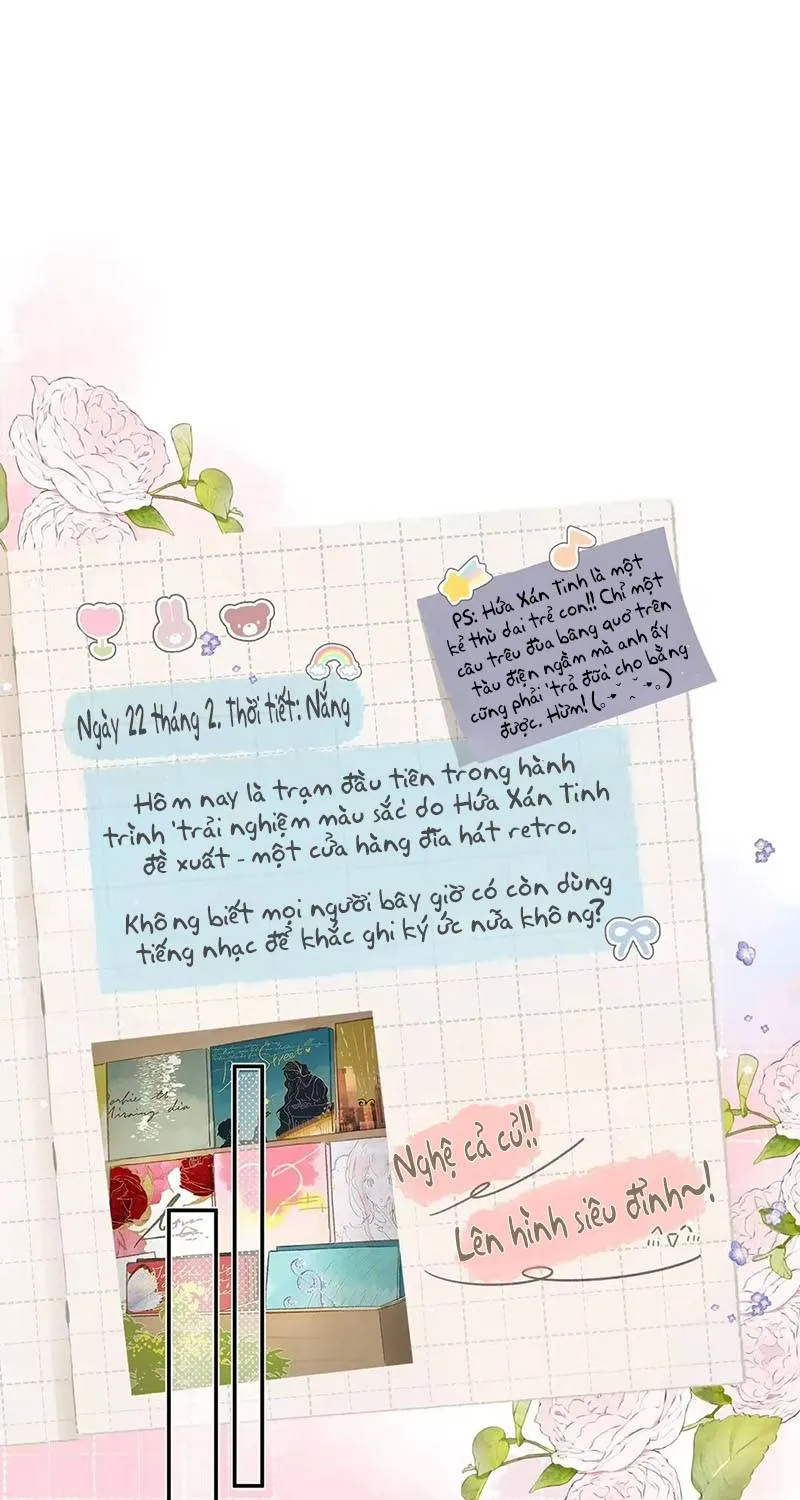 PS: Hứa Xán Tinh là một
kẻ thù dai trẻ con!! Chỉ một
câu trêu đùa bâng quơ trên
tàu điện ngầm mà anh ấy
cũng phải 'trả đũa' cho bằng
được. Hừm!
Ngày 22 tháng 2. Thời tiết: Nắng
Hôm nay là trạm đầu tiên trong hành
trình 'trải nghiệm màu sắc' do Hứa Xán Tinh
đề xuất - một cửa hàng đĩa hát retro.
Không biết mọi người bây giờ có còn dùng
tiếng nhạc để khắc ghi ký ức nữa không?
Street
Nghệ cả củ!!
Lên hình siêu đỉnh~!